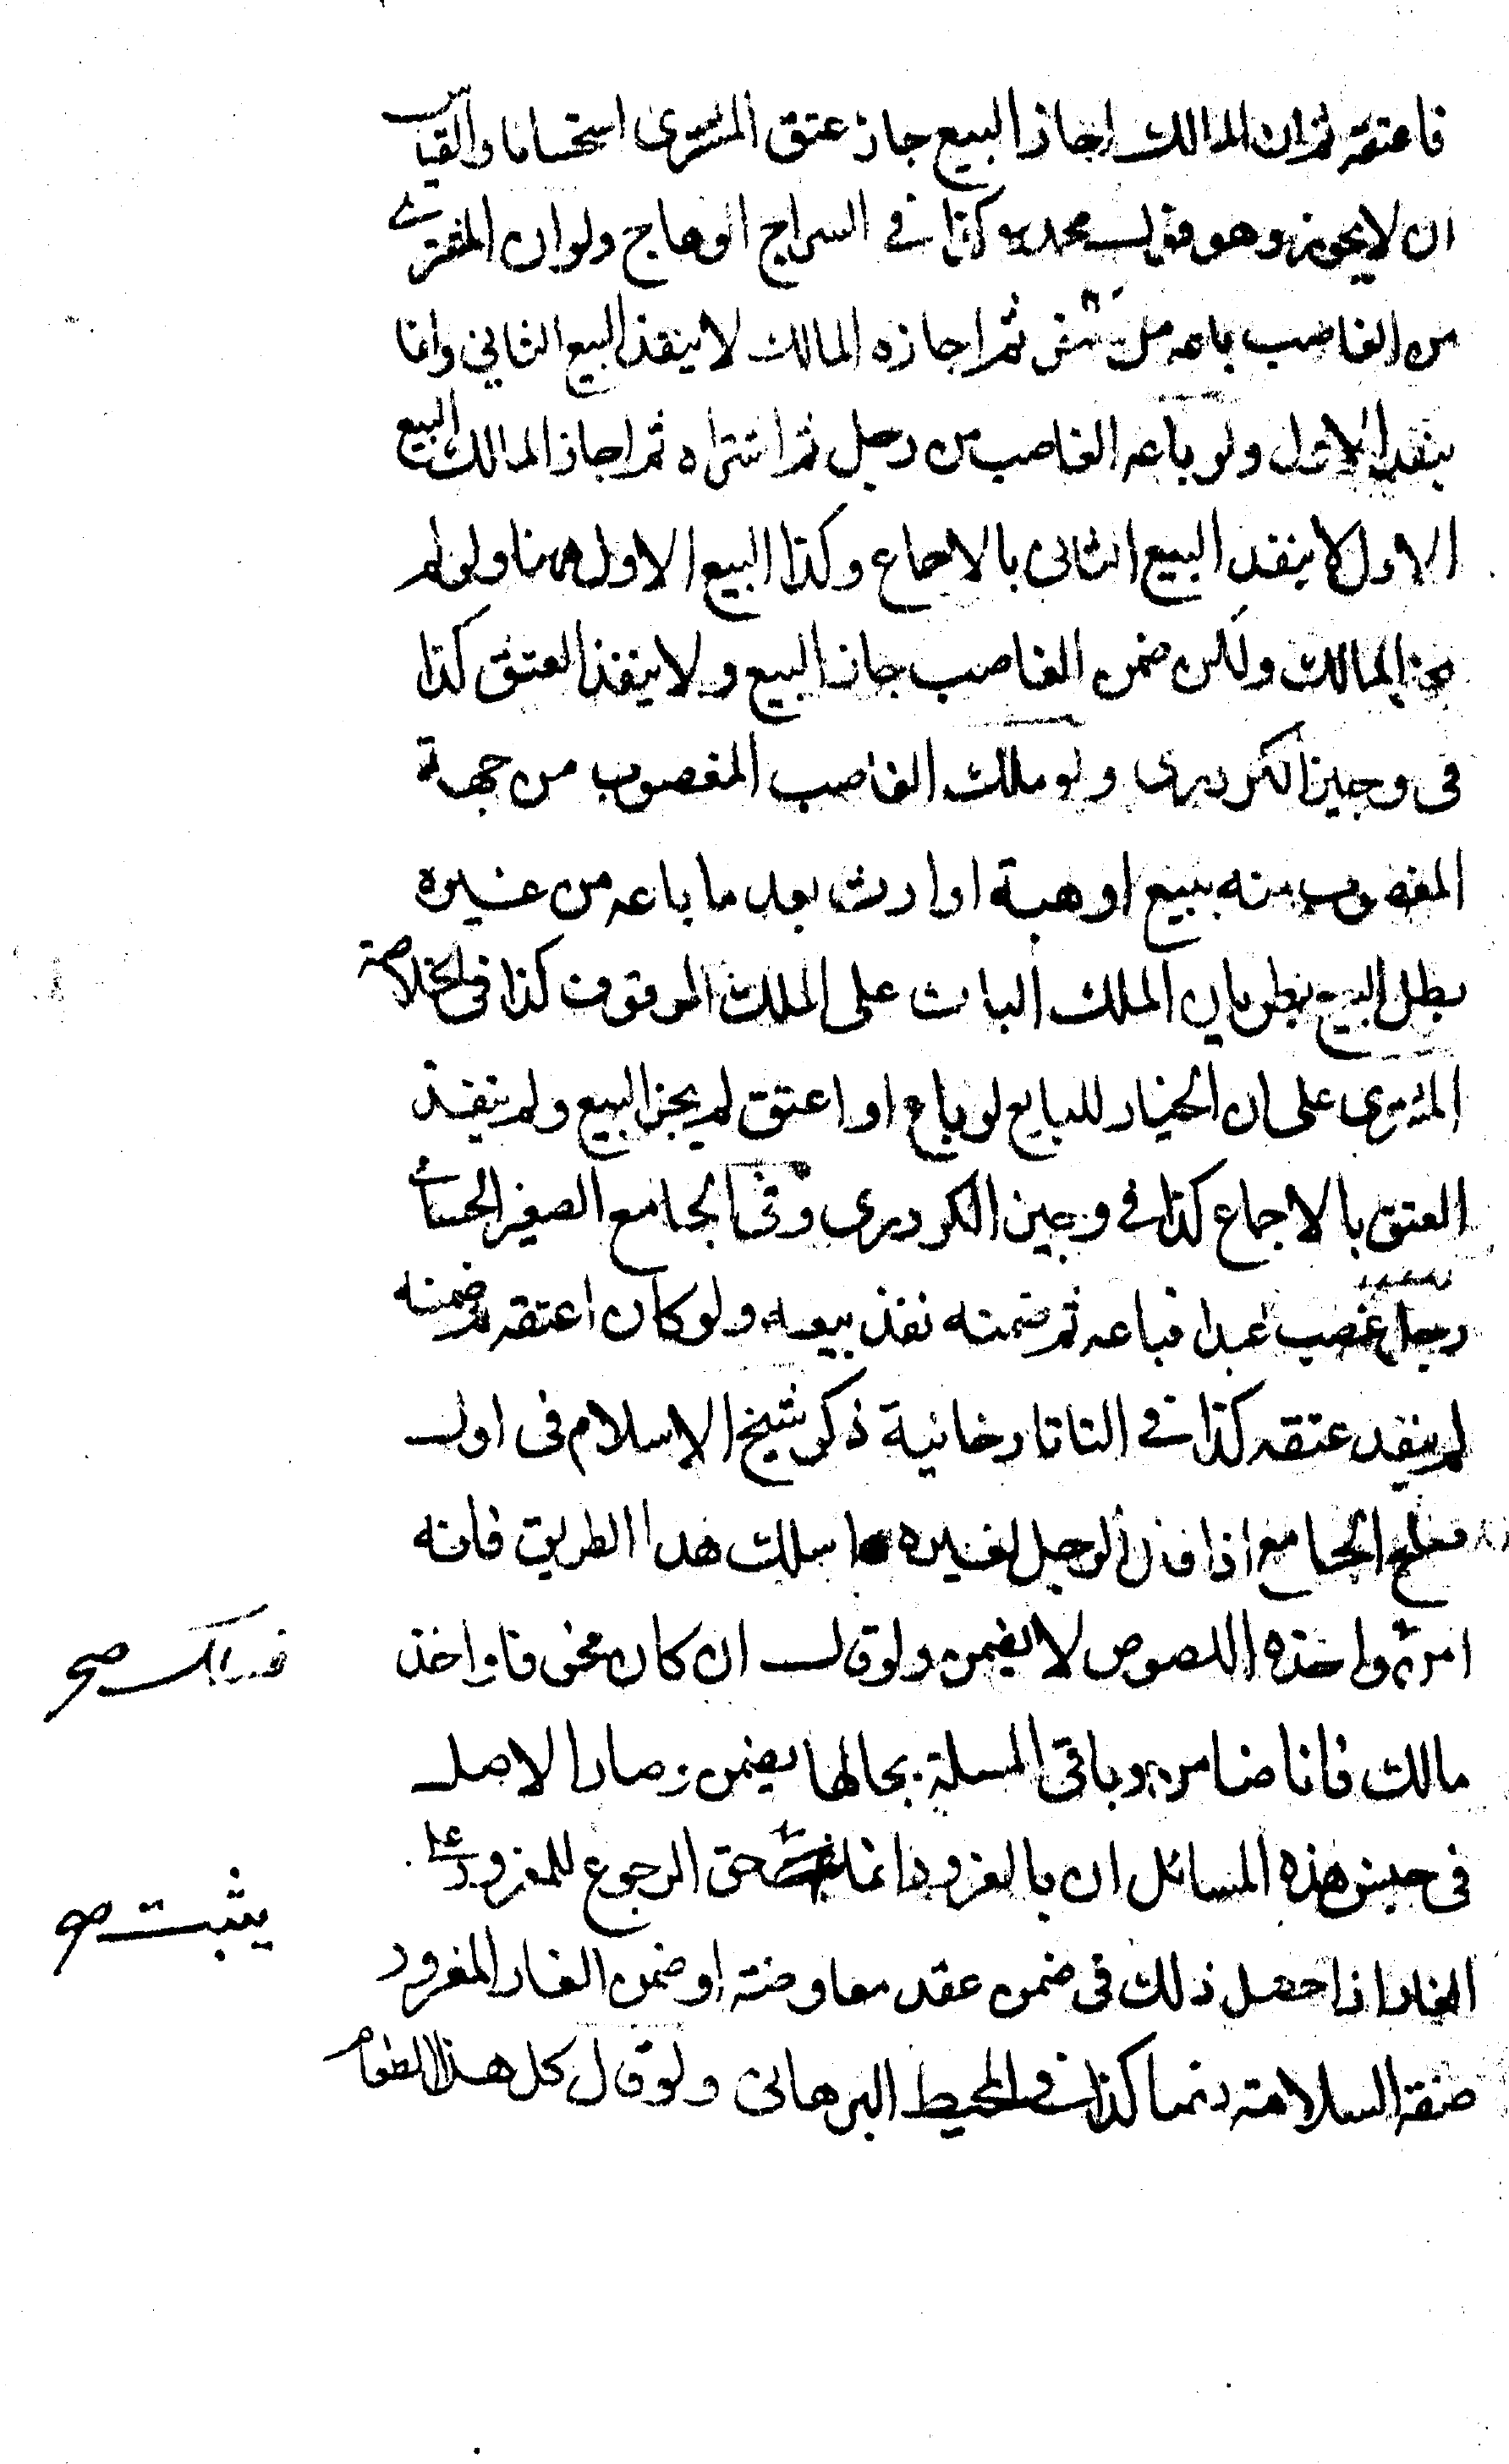 فاعتقه ثم ان المالك اجاز البيع جاز عتق المشترى استحسانا والقياس
ان لا يجوز وهو قول محمد كذا في السراج الوهاج ولو ان المشتري
من الغاصب باعه من ثم اجازه المالك لا ينفذ البيع الثاني وانما
ينفذ الاول ولو باعه الغاصب من رجل ثم اشتراه ثم اجاز المالك البيع
الاول لا ينفذ البيع الثانى بالاجماع وكذا البيع الاول ههنا ولو لم
يجز المالك ولكن ضمن الغاصب جاز البيع ولا ينفذ العتق كذا
فى وجيز الكردرى ولو ملك الغاصب المغصوب من جهة
المغصوب منه ببيع او هبة او ارث بعد ما باعه من غيره
بطل البيع بطريان الملك البات على الملك الموقوف كذا فى الخلاصة
المشترى على ان الخيار للبايع لو باع او اعتق لم يجز البيع ولم ينفذ
العتق بالاجماع كذا في وجيز الكردرى وفى الجامع الصغير الحسامي
رجل غصب عبدا فباعه ثم ضمنه نفذ بيعه ولو كان اعتقه ثم ضمنه
لم ينفذ عتقه كذا في التاتارخانية ذكر شيخ الاسلام فى اول
صلح الجامع اذا قال الرجل لغيره اسلك هذا الطريق فانه
امن واخذه اللصوص لا يضمن ولو قال ان كان مخوفا واخذ
فسلك صح
مالك فانا ضامن وباقى المسلة بحالها يضمن وصار الاصل
فى جنس هذه المسائل ان بالغرور انما حق الرجوع للمغرور على
يثبت صح
الغار اذا حصل ذلك فى ضمن عقد معاوضة او ضمن الغار المغرور
صفة السلامة نصا كذا في المحيط البرهانى ولو قال كل هذا الطعام